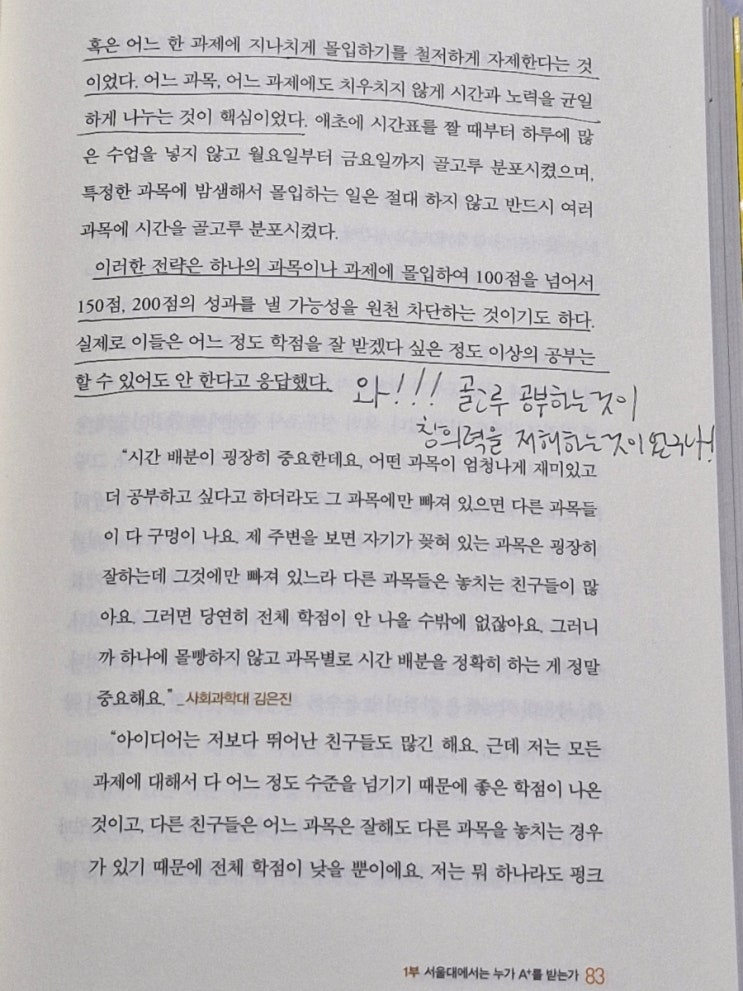 혹은 어느 한 과제에 지나치게 몰입하기를 철저하게 자제한다는 것
이었다. 어느 과목, 어느 과제에도 치우치지 않게 시간과 노력을 균일
하게 나누는 것이 핵심이었다. 애초에 시간표를 짤 때부터 하루에 많
은 수업을 넣지 않고 월요일부터 금요일까지 골고루 분포시켰으며,
특정한 과목에 밤샘해서 몰입하는 일은 절대 하지 않고 반드시 여러
과목에 시간을 골고루 분포시켰다.
이러한 전략은 하나의 과목이나 과제에 몰입하여 100점을 넘어서
150점, 200점의 성과를 낼 가능성을 원천 차단하는 것이기도 하다.
실제로 이들은 어느 정도 학점을 잘 받겠다 싶은 정도 이상의 공부는
할 수 있어도 안 한다고 응답했다. 와!!! 골고루 공부하는 것이
창의력을 저해하는 것이었구나!
“시간 배분이 굉장히 중요한데요, 어떤 과목이 엄청나게 재미있고
더 공부하고 싶다고 하더라도 그 과목에만 빠져 있으면 다른 과목들
이 다 구멍이 나요. 제 주변을 보면 자기가 꽂혀 있는 과목은 굉장히
잘하는데 그것에만 빠져 있느라 다른 과목들은 놓치는 친구들이 많
아요. 그러면 당연히 전체 학점이 안 나올 수밖에 없잖아요. 그러니
까 하나에 몰빵하지 않고 과목별로 시간 배분을 정확히 하는 게 정말
중요해요.” _ 사회과학대 김은진
“아이디어는 저보다 뛰어난 친구들도 많긴 해요. 근데 저는 모든
과제에 대해서 다 어느 정도 수준을 넘기기 때문에 좋은 학점이 나온
것이고, 다른 친구들은 어느 과목은 잘해도 다른 과목을 놓치는 경우
가 있기 때문에 전체 학점이 낮을 뿐이에요. 저는 뭐 하나라도 펑크
1부 서울대에서는 누가 A+를 받는가 83